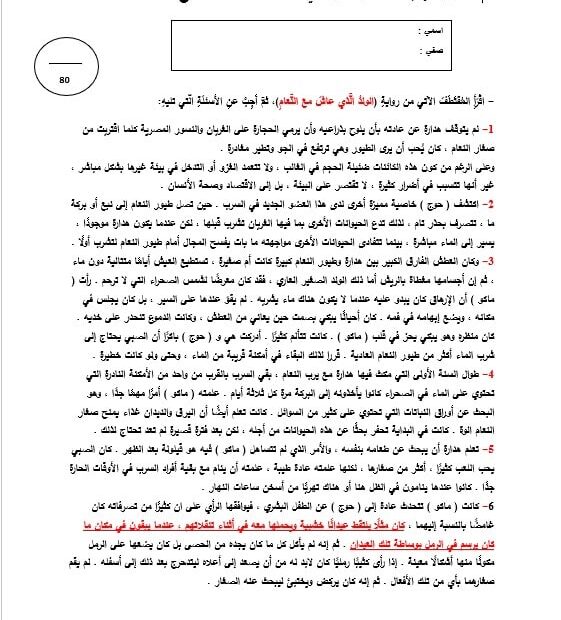 اسمي :
صفي :
80
- اقْرَأْ المُقتَطَفَ الآتي من روايةِ (الولدُ الَّذي عاش مع النَّعامِ)، ثمّ أجِبْ عن الأسئلةِ الَّتي تليهِ:
1- لم يتوقّف هدارة عن عادته بأن يلوح بذراعيه وأن يرمي الحجارة على الغربان والنسور المصرية كلما اقتربت من
صغار النعام ، كان يُحب أن يرى الطيور وهي ترتفع في الجو وتطير مغادرة .
وعلى الرغم من كون هذه الكائنات ضئيلة الحجم في الغالب ، ولا تتعمد الغزو أو التدخل في بيئة غيرها بشكل مباشر ،
غير أنها تتسبب في أضرار كثيرة ، لا تقتصر على البيئة ، بل إلى الاقتصاد وصحة الأنسان .
2- اكتشف ( حوج ) خاصية مميزة أخرى لدى هذا العضو الجديد في السرب . حين تصل طيور النعام إلى نبع أو بركة
ما ، تتصرف بحذر تام ، لذلك تدع الحيوانات الأخرى بما فيها الغربان تشرب قبلها ، لكن عندما يكون هدارة موجودًا ،
يسير إلى الماء مباشرة ، بينما تتفادى الحيوانات الأخرى مواجهته ما بات يفسح المجال أمام طيور النعام لتشرب أولًا .
3- وكان العطش الفارق الكبير بين هدارة وطيور النعام كبيرة كانت أم صغيرة ، تستطيع العيش أيامًا متتالية دون ماء
، ثم إن أجسامها مغطاة بالريش أما ذلك الولد الصغير العاري ، فقد كان معرضًا لشمس الصحراء التي لا ترحم . رأت (
ماكو ) أن الإرهاق كان يبدو عليه عندما لا يكون هناك ماء يشربه . لم يقو عندها على السير ، بل كان يجلس في
مكانه ، ويضع إبهامه في فمه . كان أحيانًا يبكي بصمت حين يعاني من العطش ، وكانت الدموع تنحدر على خديه .
كان منظره وهو يبكي يحز في قلب ( ماكو ) . كانت تتألم كثيرًا . أدركت هي و ( حوج ) باكرًا أن الصبي يحتاج إلى
شرب الماء أكثر من طيور النعام العادية . قررا لذلك البقاء في أمكنة قريبة من الماء ، وحتى ولو كانت خطيرة .
4- طوال السنة الأولى التي مكث فيها هدارة مع يرب النعام ، بقي السرب بالقرب من واحد من الأمكنة النادرة التي
تحتوي على الماء في الصحراء كانوا يأخذونه إلى البركة مرة كل ثلاثة أيام . علمته ( ماكو ) أمرًا مهمًا جدًا ، وهو
البحث عن أوراق النباتات التي تحتوي على كثير من السوائل . كانت تعلم أيضًا أن اليرق والديدان غذاء يمنح صغار
النعام الوة . كانت في البداية تحفر بحثًا عن هذه الحيوانات من أجله ، لكن بعد فترة قصيرة لم تعد تحتاج لذلك .
5- تعلم هدارة أن يبحث عن طعامه بنفسه ، والأمر الذي لم تتساهل ( ماكو ) فيه هو قيلولة بعد الظهر . كان الصبي
يحب اللعب كثيرًا ، أكثر من صغارها ، لكنها علمته عادة طيبة ، علمته أن ينام مع بقية أفراد السرب في الأوقات الحارة
جدًا . كانوا عندها ينامون في الظل هنا أو هناك تهربًا من أسخن ساعات النهار .
6- كانت ( ماكو ) تتحدث عادة إلى ( حوج ) عن الطفل البشري ، فيوافقها الرأي على ان كثيرًا من تصرفاته كان
غامضًا بالنسبة إليهما ، كان مثلًا يلتقط عيدانًا خشبية ويحملها معه في أثناء تنقلاتهم ، عندما يبقون في مكان ما
كان يرسم في الرمل بوساطة تلك العيدان . ثم إنه لم يأكل كل ما كان يجده من الحصى بل كان يضعها على الرمل
مكونًا منها أشكالًا معينة . إذا رأى كثيبًا رمليًا كان لابد له من أن يصعد إلى أعلاه ليتدحرج بعد ذلك إلى أسفله . لم يقم
صغارهما بأي من تلك الأفعال . ثم إنه كان يركض ويختبئ ليبحث عنه الصغار .